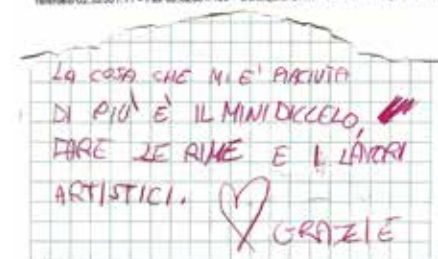 LA COSA CHE MI E' PIACIUTA
DI PIÙ È IL MINIDICCELO,
FARE LE RIME E I LAVORI
ARTISTICI.
GRAZIE